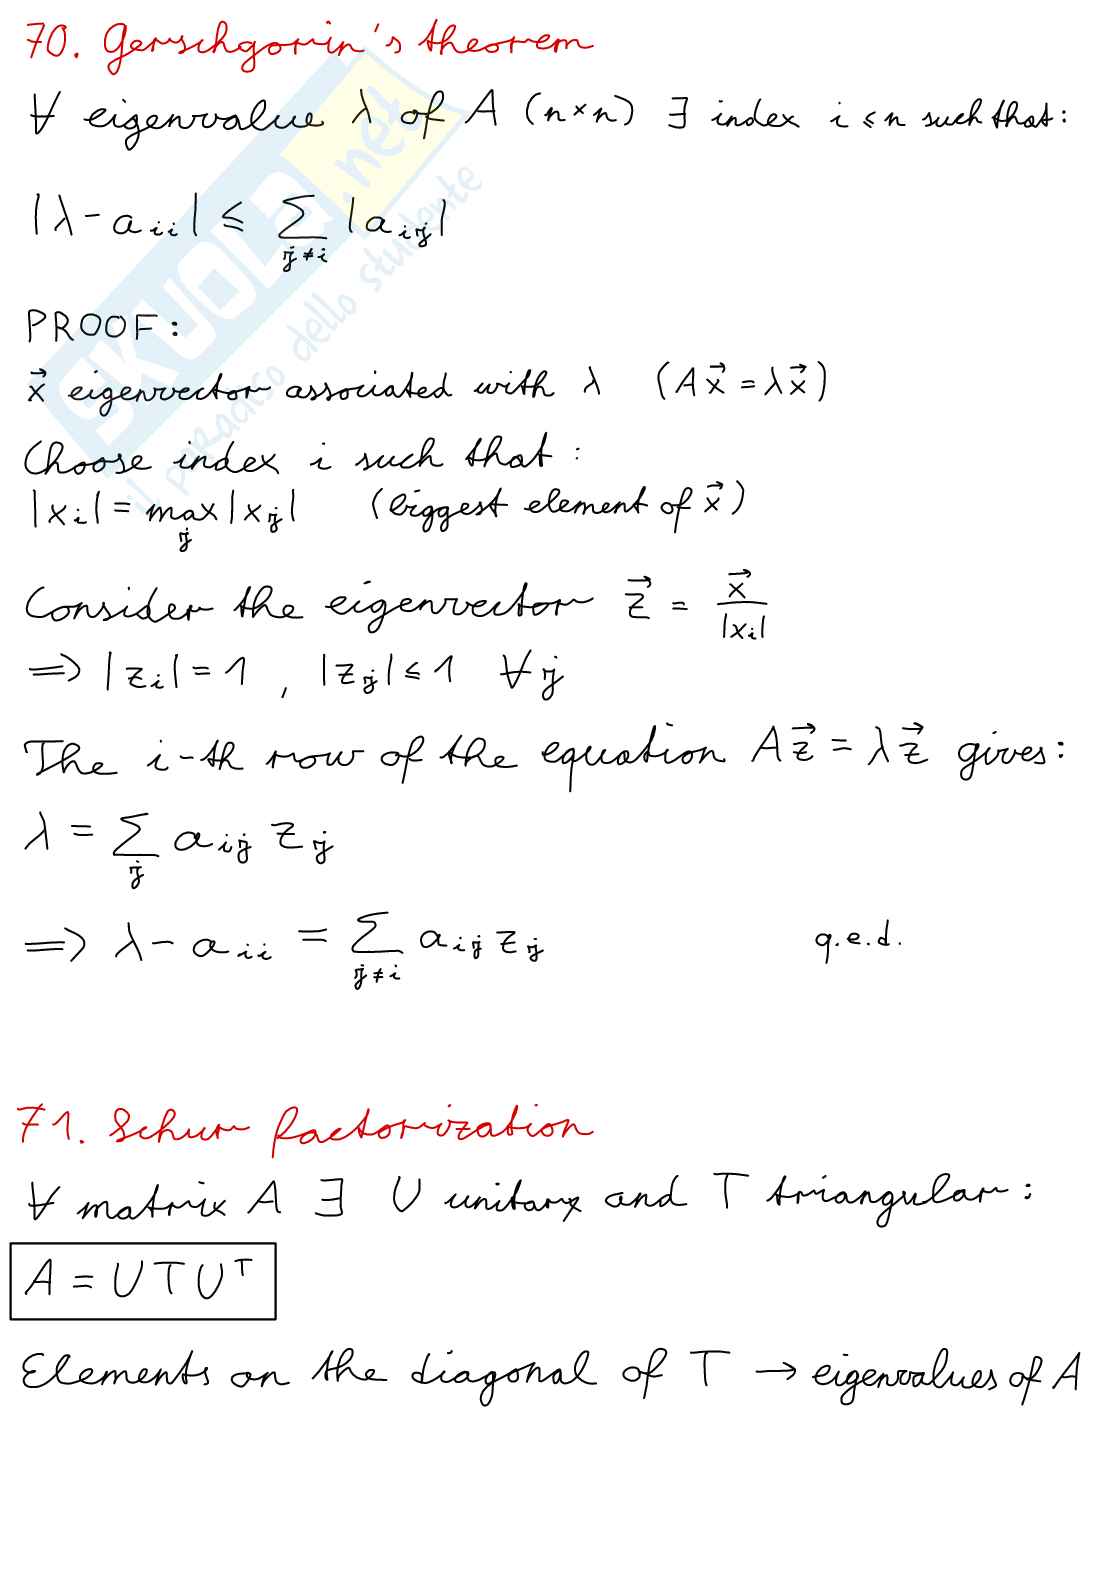 70. Gerschgorin's theorem
∀ eigenvalue λ of A (n×n) ∃ index i ≤ n such that:
|λ - a_ii| ≤ ∑_{j≠i} |a_ij|
PROOF:
x⃗ eigenvector associated with λ (Ax⃗ = λx⃗)
Choose index i such that:
|x_i| = max_j |x_j| (biggest element of x⃗)
Consider the eigenvector z⃗ = x⃗ / |x_i|
⟹ |z_i| = 1 , |z_j| ≤ 1 ∀j
The i-th row of the equation Az⃗ = λz⃗ gives:
λ = ∑_j a_ij z_j
⟹ λ - a_ii = ∑_{j≠i} a_ij z_j q.e.d.
71. Schur factorization
∀ matrix A ∃ U unitary and T triangular:
A = UTU^T
Elements on the diagonal of T → eigenvalues of A
SKUOLA.net
il paradiso dello studente